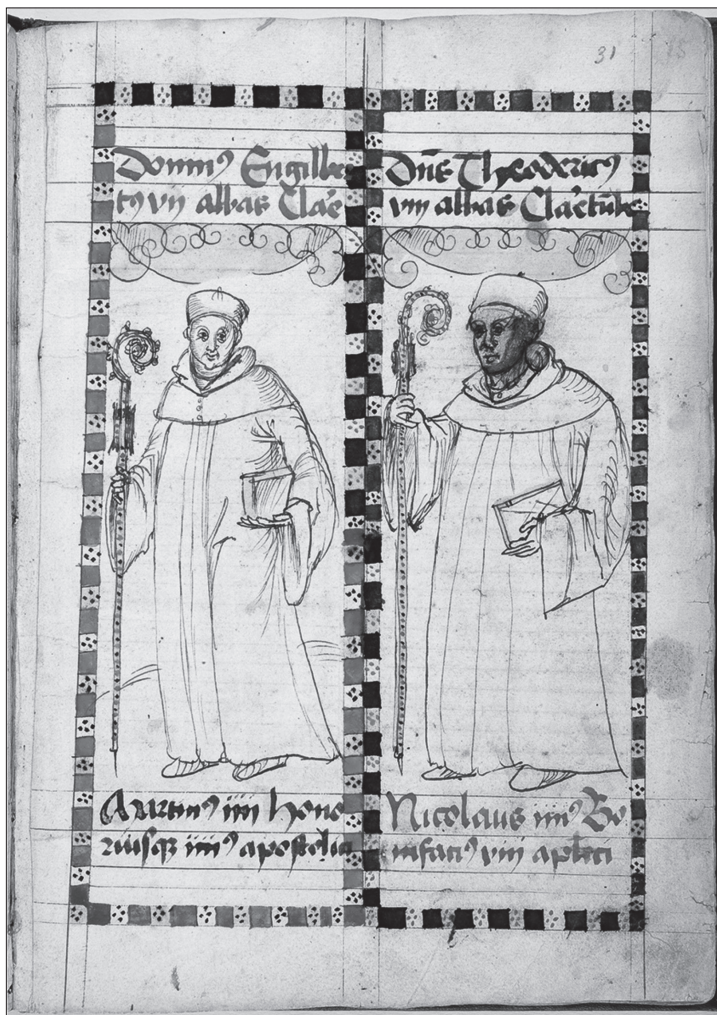 31
Domin⁹ Engilber
t⁹ vij abbas Clar̄e
Dn̄s Theoderic⁹
viij abbas Clar̄etūbē
Martin⁹ iiij Hono
riusq̷ iiij⁹ apostolici
Nicolaus iiij⁹ Bo
nifaci⁹ viij apl̄ici